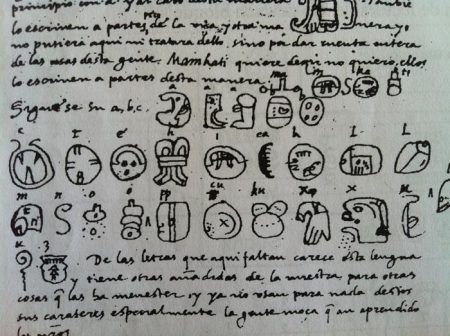 lo escriven a partes de la una y otra manera yo
no pusiera aqui ni tratara dello, sino por dar cuenta entera
de las cosas desta gente. Mamkati quiere dezir no quiero, ellos
lo escriven a partes desta manera.
Siguese su a, b, c.
a
c t e h i ca k l L
m n o o pp cu ku x x u
u z De las letras que aqui faltan carece esta lengua
y tiene otras añadidas de la nuestra para otras
cosas q̃ las ha menester, y ya no usan para nada destos
sus carateres especialmente la gente moça q̃ an aprendido